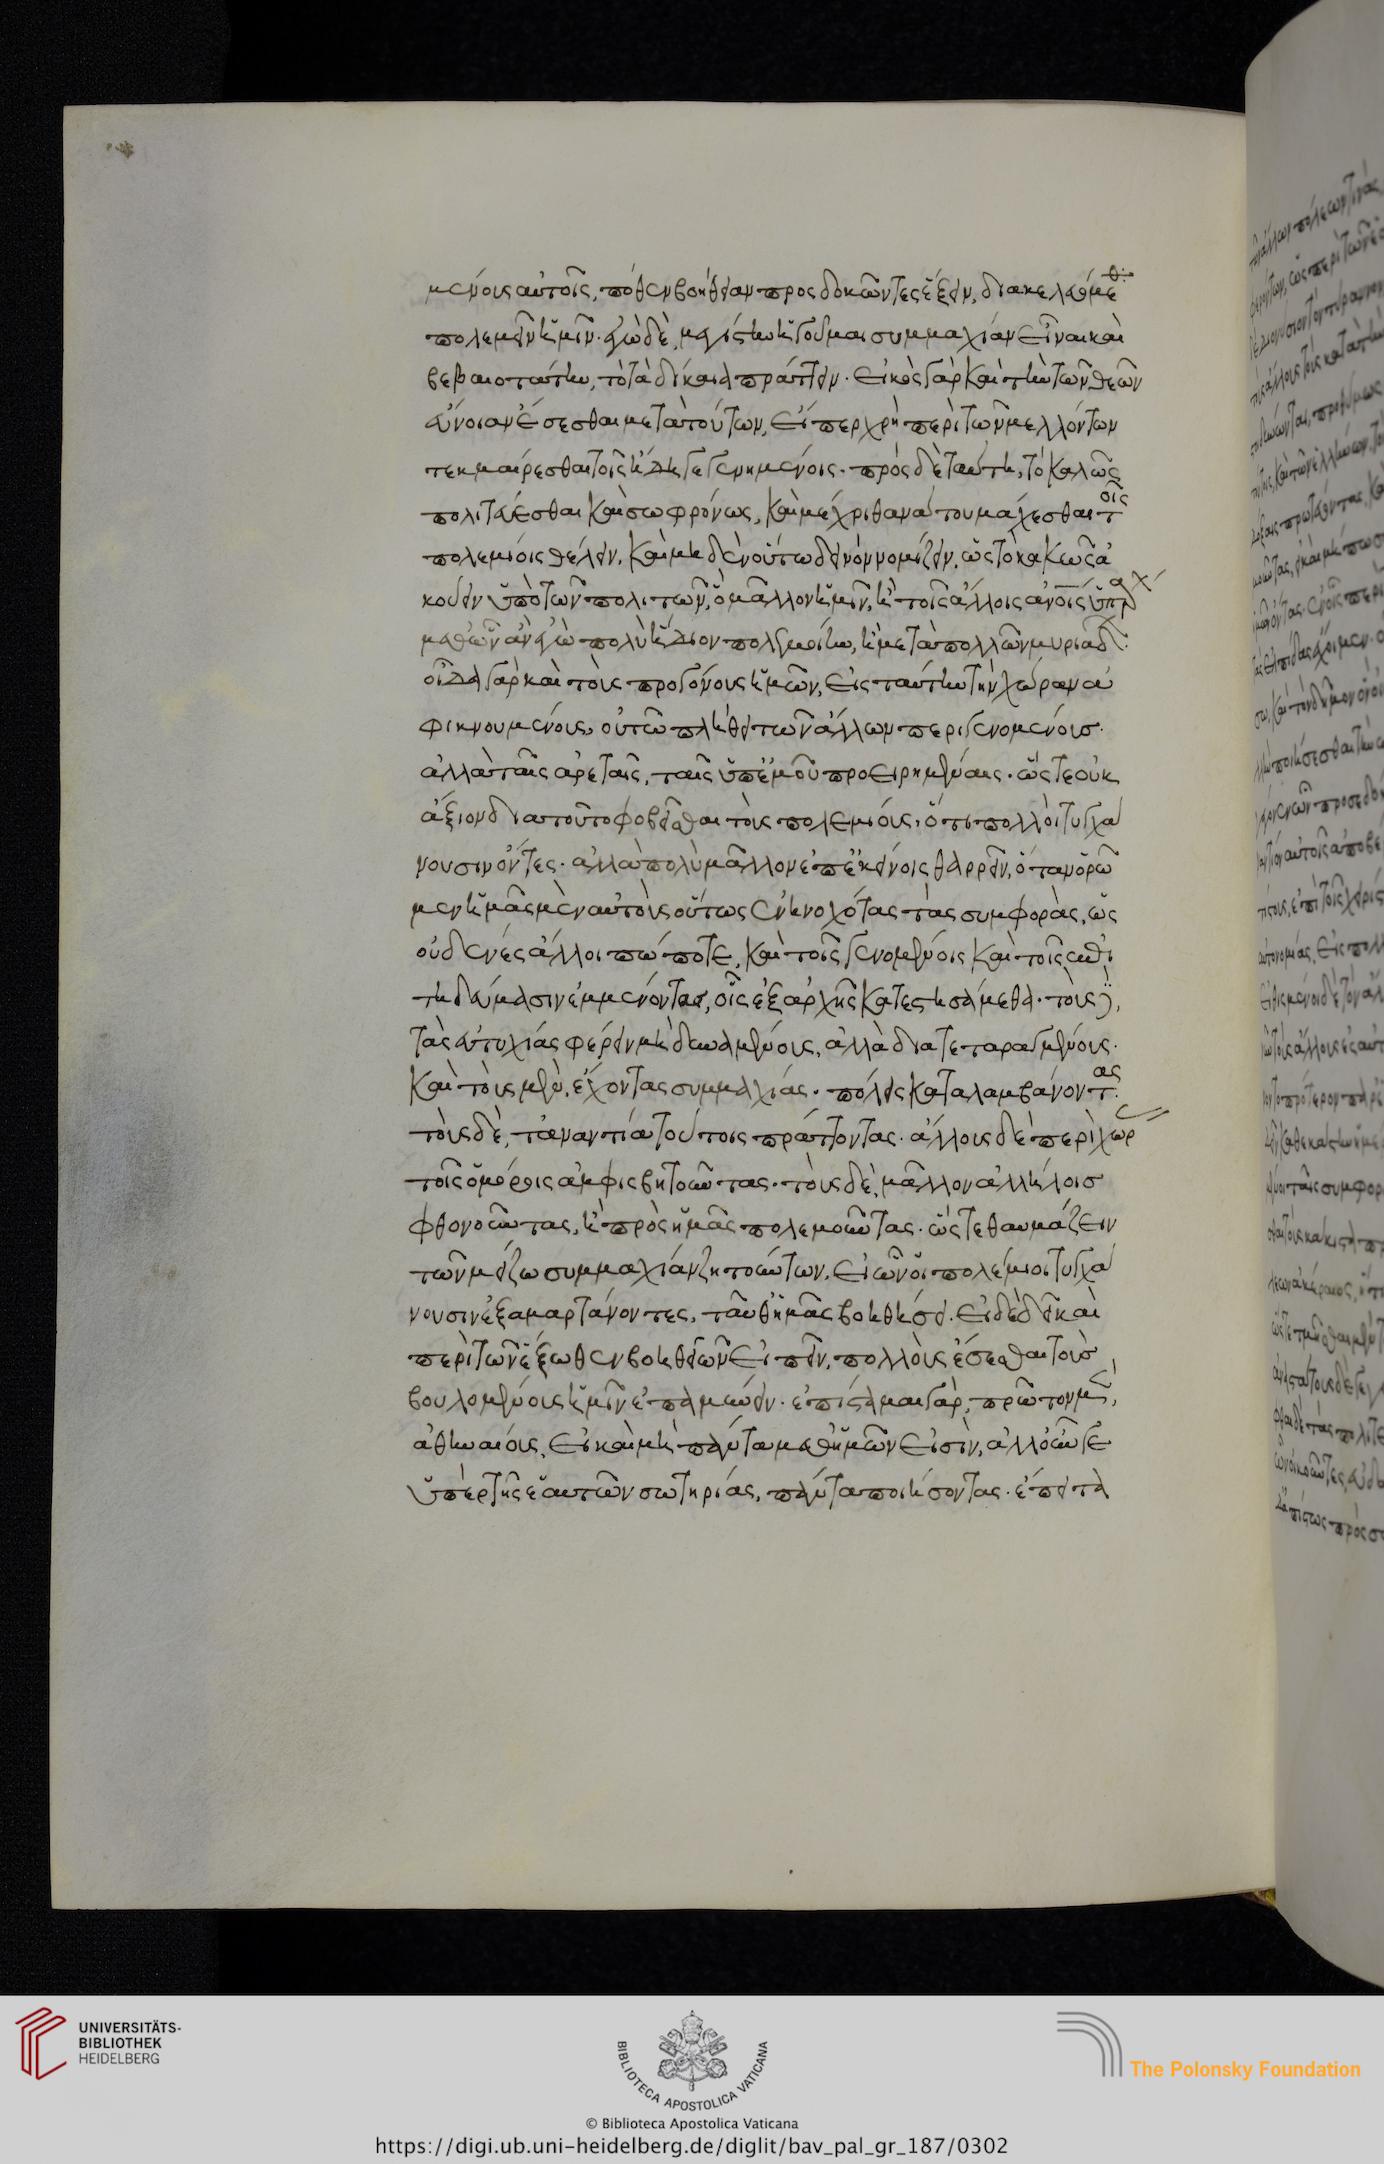 μενοις αὐτοῖς, πόθεν βοήθειαν προσδοκῶντες ἕξειν, διακελευόμεθ:
πολεμεῖν ἡμῖν. ἐγὼ δὲ, μεγίστην ἡγοῦμαι συμμαχίαν εἶναι καὶ
βεβαιοτάτην, τὸ τὰ δίκαια πράττειν. εἰκὸς γὰρ καὶ τὴν τῶν θεῶν
εὔνοιαν ἔσεσθαι μετὰ τούτων, εἴπερ χρὴ περὶ τῶν μελλόντων
τεκμαίρεσθαι τοῖς ἤδη γεγενημένοις. πρὸς δὲ ταύτη, τὸ καλῶς
πολιτεύεσθαι καὶ σωφρόνως, καὶ μέχρι θανάτου μάχεσθαι τοῖς
πολεμίοις θέλειν, καὶ μηδὲν οὕτω δεινὸν νομίζειν, ὡς τὸ κακῶς ἀ
κούειν ὑπὸ τῶν πολιτῶν, ὃ μᾶλλον ἡμῖν, ἢ τοῖς ἄλλοις ἀνοις ὑπάρχ
μεθ' ὧν ἂν ἐγὼ πολὺ ἥδιον πολεμοίην, ἢ μετὰ πολλῶν μυριάδ.
οἶδα γὰρ καὶ τοὺς προγόνους ἡμῶν, εἰς ταύτην τὴν χώραν ἀ
φικνουμένους, οὐ τῶ πλήθει τῶν ἄλλων περιγενομένους.
ἀλλὰ ταῖς ἀρεταῖς, ταῖς ὑπ' ἐμοῦ προειρημέναις. ὥστε οὐκ
ἄξιον διὰ τοῦτο φοβεῖσθαι τοὺς πολεμίους, ὅτι πολλοὶ τυγχά
νουσιν ὄντες. ἀλλὰ πολὺ μᾶλλον ἐπ' ἐκείνοις θαρρεῖν, ὅταν ὁρῶ
μεν ἡμᾶς μὲν αὐτοὺς οὕτως ἐνηνοχότας τὰς συμφορὰς, ὡς
οὐδένες ἄλλοι πώποτε, καὶ τοῖς γενομένοις καὶ τοῖς ἐπι
τηδεύμασιν ἐμμένοντας, οἷς ἐξ ἀρχῆς κατεστησάμεθα. τοὺς
τὰς εὐτυχίας φέρειν μὴ δυναμένους, ἀλλὰ διατεταραγμένους.
καὶ τοὺς μὲν, ἔχοντας συμμαχίας. πόλεις καταλαμβάνοντας.
τοὺς δὲ, τἀναντία τούτοις πράττοντας. ἄλλους δὲ περὶ χώρ
τοῖς ὁμόροις ἀμφισβητοῦντας. τοὺς δὲ, μᾶλλον ἀλλήλοις
φθονοῦντας, ἢ πρὸς ἡμᾶς πολεμοῦντας. ὥστε θαυμάζειν
τῶν μείζω συμμαχίαν ζητούντων, εἰ ὧν οἱ πολέμιοι τυγχά
νουσιν ἐξαμαρτάνοντες, ταῦθ' ἡμᾶς βοηθήσει. εἰ δὲ δεῖ καὶ
περὶ τῶν ἔξωθεν βοηθειῶν εἰπεῖν, πολλοὺς ἔσεσθαι τοὺς
βουλομένους ἡμῖν ἐπαμύνειν. ἐπίσταμαι γὰρ, πρῶτον μὲν,
ἀθηναίους, εἰ καὶ μὴ πάντα μεθ' ἡμῶν εἰσὶν, ἀλλ' οὖν γε
ὑπὲρ τῆς ἑαυτῶν σωτηρίας, πάντα ποιήσοντας. ἔπειτα
UNIVERSITÄTS-
BIBLIOTHEK
HEIDELBERG
BIBLIOTECA APOSTOLICA VATICANA
The Polonsky Foundation
© Biblioteca Apostolica Vaticana
https://digi.ub.uni-heidelberg.de/diglit/bav_pal_gr_187/0302